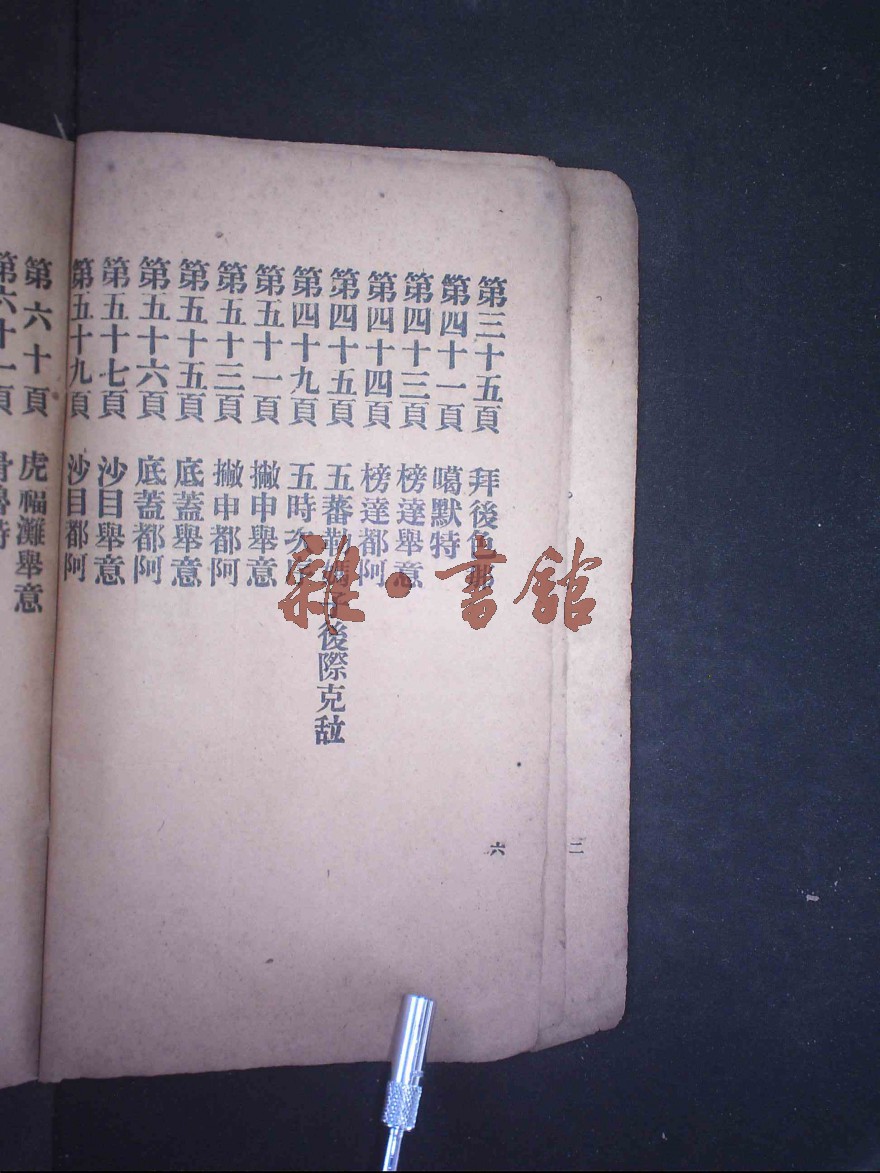 第三十五頁 拜後色
第四十一頁 噶默特
第四十三頁 榜達舉意
第四十四頁 榜達都阿
第四十五頁 五蕃 後際克
第四十九頁 五時
第五十一頁 撇申舉意
第五十三頁 撇申都阿
第五十五頁 底蓋舉意
第五十六頁 底蓋都阿
第五十七頁 沙目舉意
第五十九頁 沙目都阿
第六十頁 虎福灘舉意
第六十一頁
六
二
雜·書館